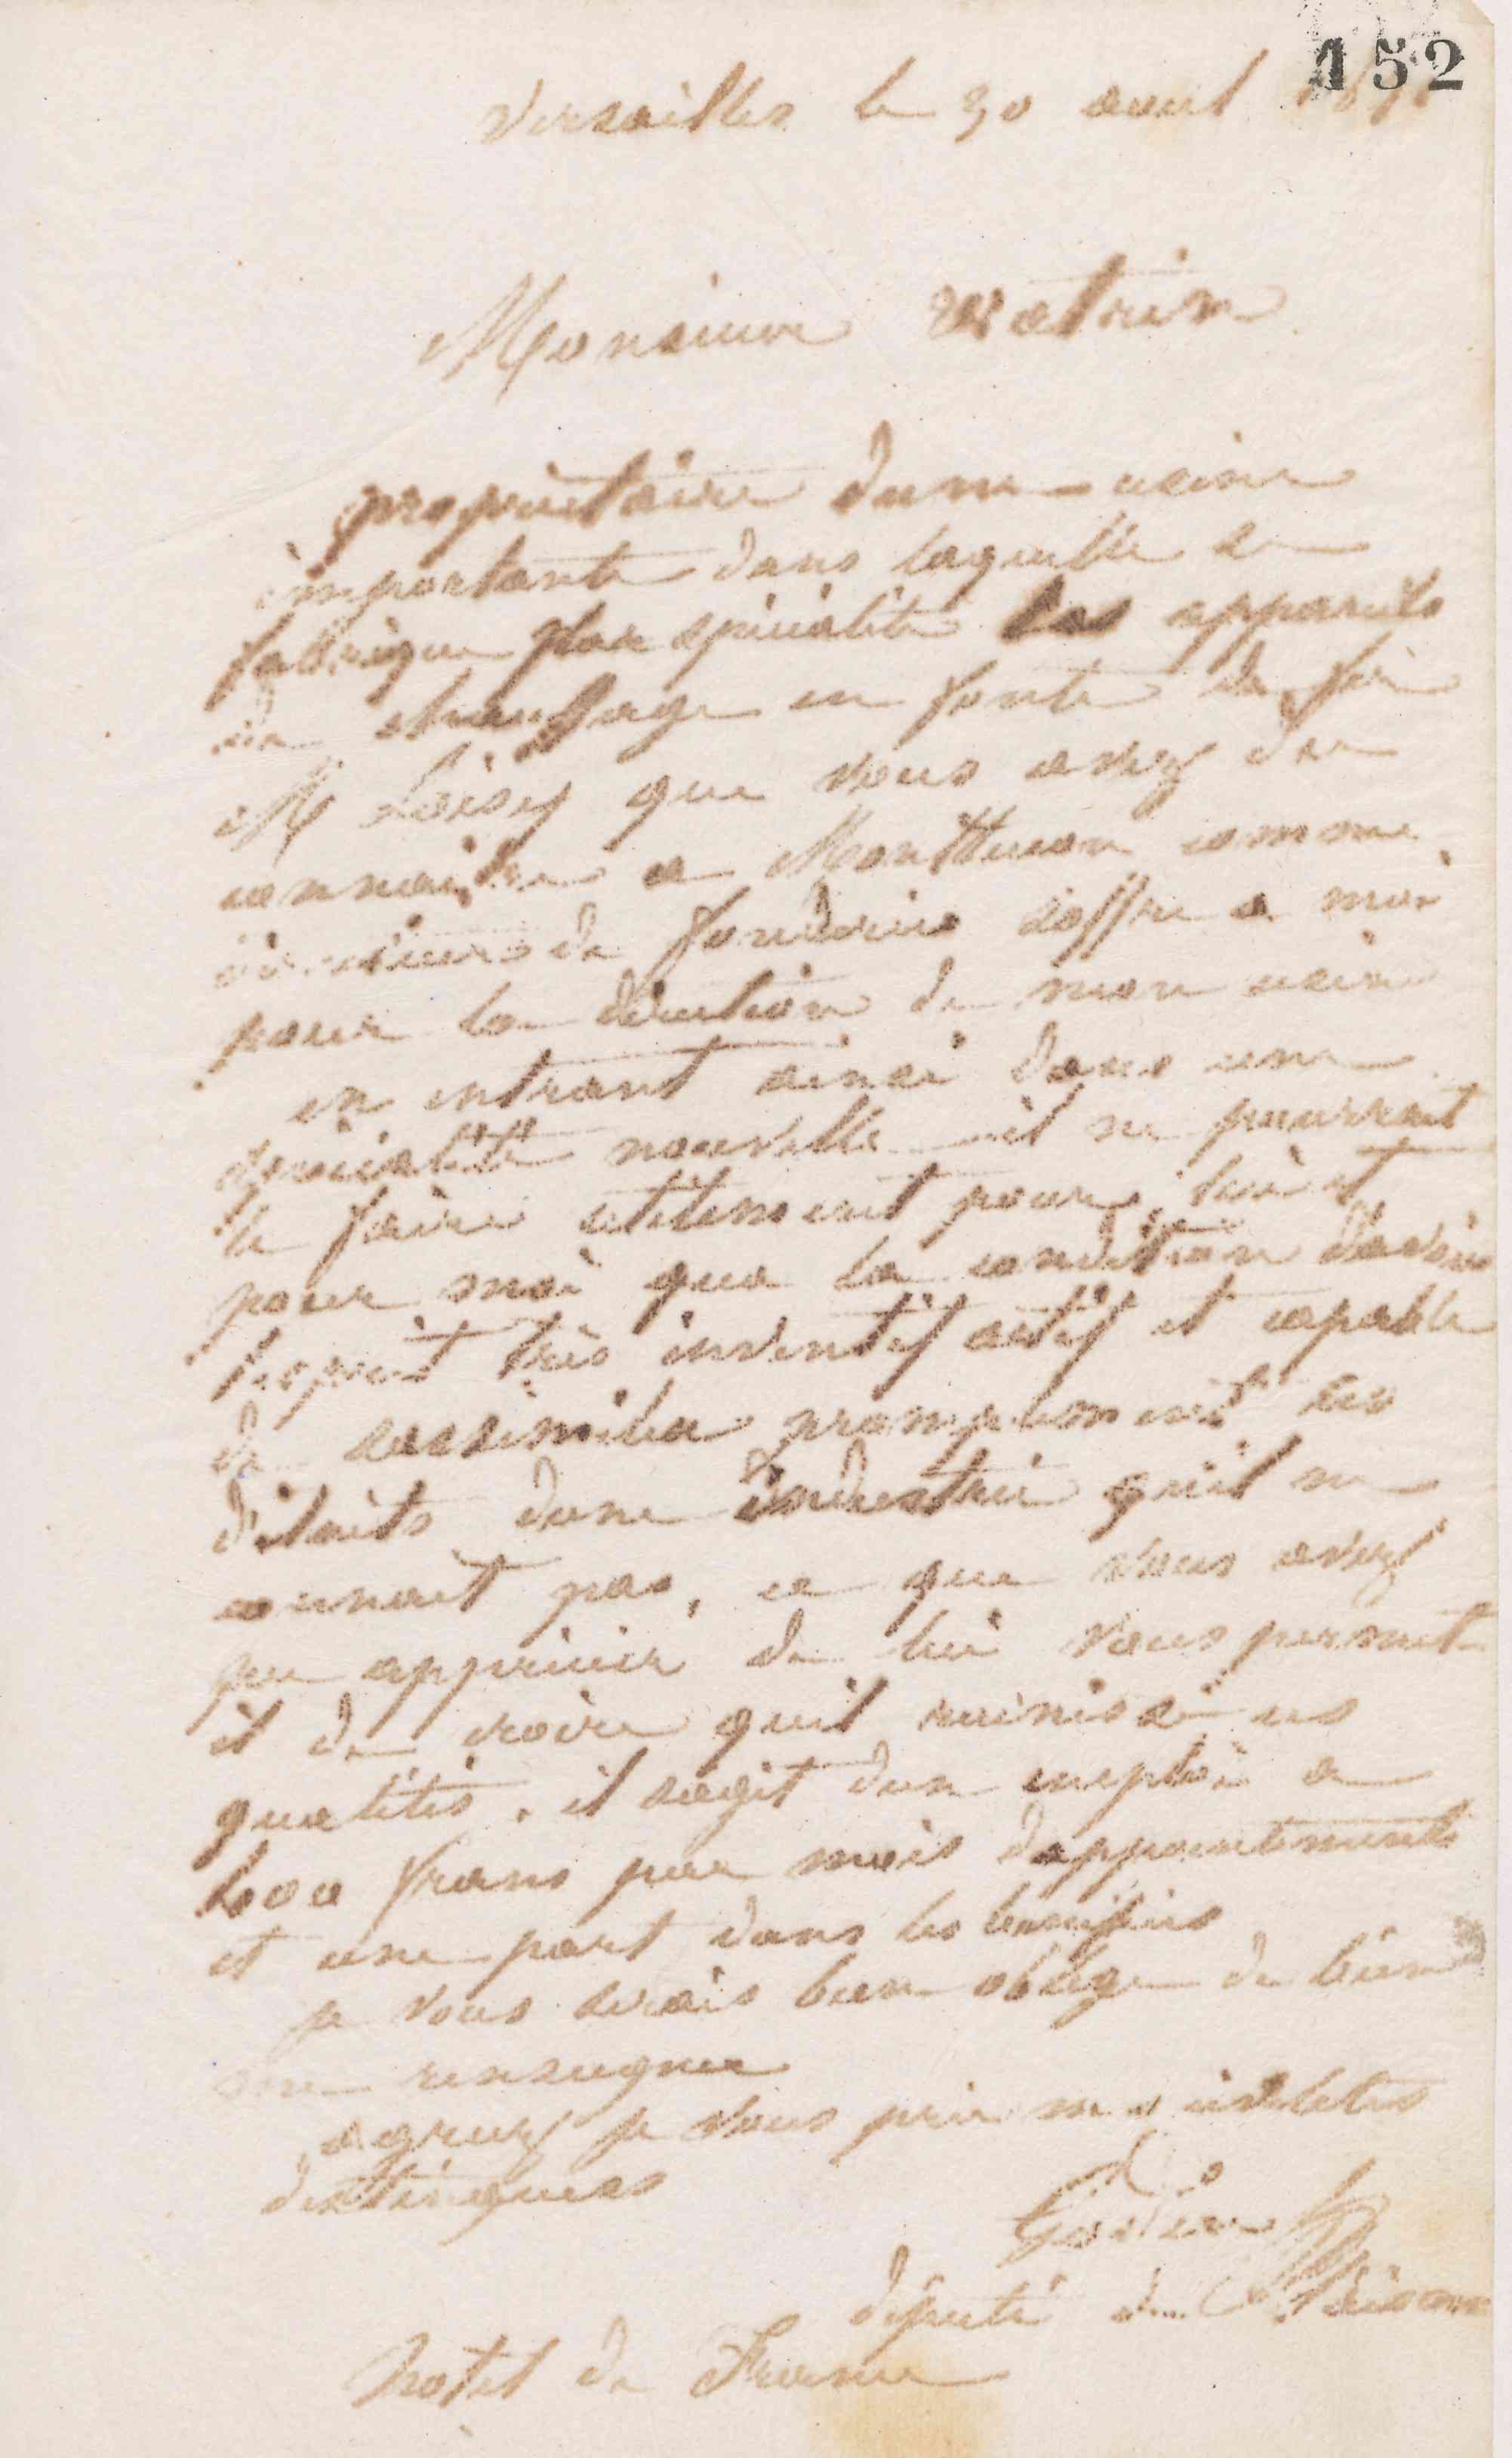 152
Versailles le 30 aout
Monsieur Watrin
propriétaire dune usine
importante dans laquelle se
fabrique par spécialité les appareils
de chauffage en fonte de fer
M Loisey que vous avez du
connaitre a Montlucon comme
de fonderies soffre a moi
pour la direction de mon usine
en entrant ainsi dans une
spécialité nouvelle il ne pourrait
le faire utilement pour lui et
pour moi qua la condition davoir
lesprit très inventif actif et capable
de sassimiler promptement les
détails dune industrie quil ne
connait pas, ce que vous avez
pu apprécier de lui vous permet
il de croire quil réunisse ces
qualités. il sagit dun emploi a
francs par mois dappointements
et une part dans les bénéfices
je vous serais bien obligé de bien
me renseigner
agréez je vous prie mes civilités
distinguées
Godin
député de l'Aisne
hotel de France